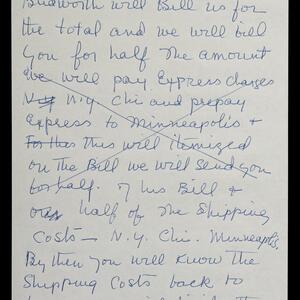 Budworth will Bill us for
the total and we will bill
you for half the amount
We will pay Express charges
N.Y. Chi and prepay
Express to Minneapolis &
For this this will itemized
on the Bill we will send you
for half. This Bill &
our half of the Shipping
Costs — N.Y. Chi. Minneapolis.
By then you will know the
Shipping Costs back to